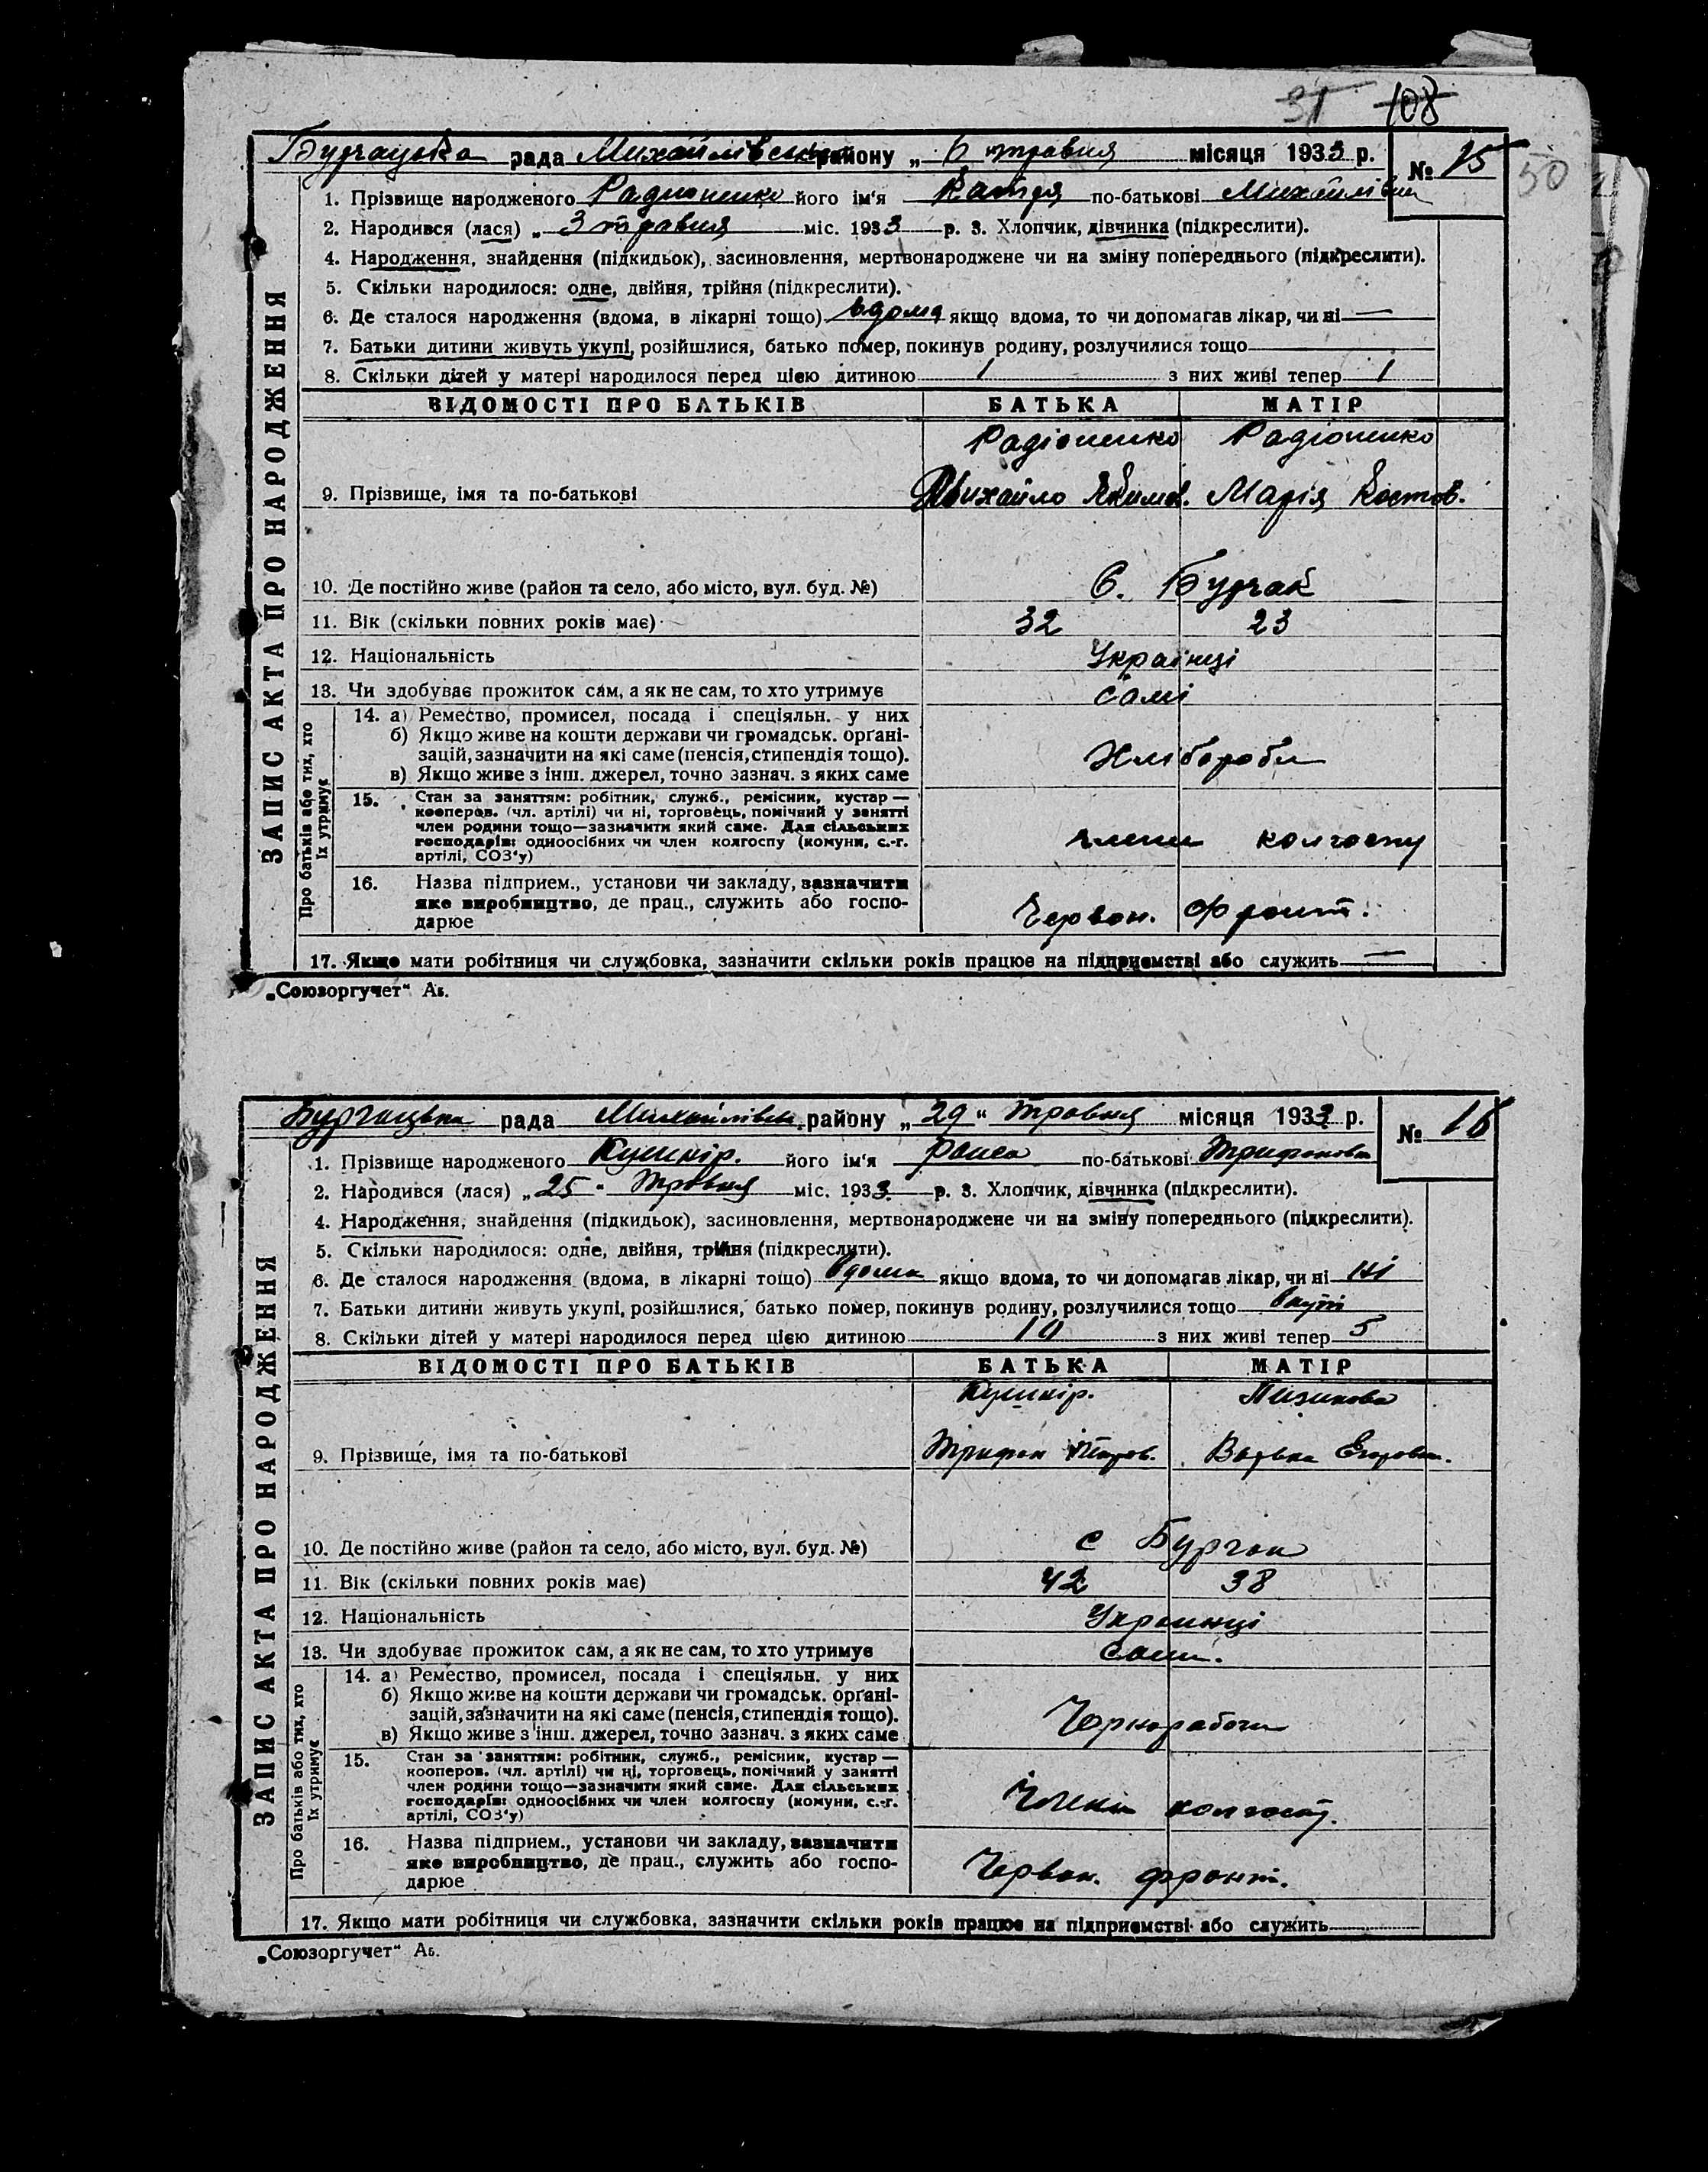 31 108
50
Бурчацька рада Михайлівськ району „ 6 травня місяця 1933 р. № 15
1. Прізвище народженого Радионенко його ім'я Катря по-батькові Михайлівна
2. Народився (лася) „ 3 травня міс. 1933 р. 3. Хлопчик, дівчинка (підкреслити).
4. Народження, знайдення (підкидьок), засиновлення, мертвонароджене чи на зміну попереднього (підкреслити).
5. Скільки народилося: одне, двійня, трійня (підкреслити).
6. Де сталося народження (вдома, в лікарні тощо) вдома якщо вдома, то чи допомагав лікар, чи ні —
7. Батьки дитини живуть укупі, розійшлися, батько помер, покинув родину, розлучилися тощо
8. Скільки дітей у матері народилося перед цією дитиною 1 з них живі тепер 1
ЗАПИС АКТА ПРО НАРОДЖЕННЯ
ВІДОМОСТІ ПРО БАТЬКІВ БАТЬКА МАТІР
Радіоненко Радіоненко
9. Прізвище, імя та по-батькові Михайло Якимов. Марія Костов.
10. Де постійно живе (район та село, або місто, вул. буд. №) С. Бурчак
11. Вік (скільки повних років має) 32 23
12. Національність Українці
13. Чи здобуває прожиток сам, а як не сам, то хто утримує самі
Про батьків або тих, хто їх утримує
14. а) Ремество, промисел, посада і спеціяльн. у них
б) Якщо живе на кошти держави чи громадськ. орґані-
зацій, зазначити на які саме (пенсія, стипендія тощо). Хлібороби
в) Якщо живе з інш. джерел, точно зазнач. з яких саме
15. Стан за заняттям: робітник, служб., ремісник, кустар —
кооперов. (чл. артілі) чи ні, торговець, помічний у занятті
член родини тощо—зазначити який саме. Для сільських
господарів: одноосібних чи член колгоспу (комуни, с.-г. члени колгоспу
артілі, СОЗ'у)
16. Назва підприєм., установи чи закладу, зазначити
яке виробництво, де прац., служить або госпо- Червон. Фронт.
дарює
17. Якщо мати робітниця чи службовка, зазначити скільки років працює на підприємстві або служить —
„Союзоргучет“ Аб.
Бурчацька рада Михайлівськ. району „ 29 “ травня місяця 1933 р. № 16
1. Прізвище народженого Кушнір. його ім'я Раиса по-батькові Трифоновна
2. Народився (лася) „ 25 “ травня міс. 1933 р. 3. Хлопчик, дівчинка (підкреслити).
4. Народження, знайдення (підкидьок), засиновлення, мертвонароджене чи на зміну попереднього (підкреслити).
5. Скільки народилося: одне, двійня, трійня (підкреслити).
6. Де сталося народження (вдома, в лікарні тощо) вдома якщо вдома, то чи допомагав лікар, чи ні ні
7. Батьки дитини живуть укупі, розійшлися, батько помер, покинув родину, розлучилися тощо вкупі
8. Скільки дітей у матері народилося перед цією дитиною 10 з них живі тепер 5
ЗАПИС АКТА ПРО НАРОДЖЕННЯ
ВІДОМОСТІ ПРО БАТЬКІВ БАТЬКА МАТІР
Кушнір.
9. Прізвище, імя та по-батькові Трифон Егоровн.
10. Де постійно живе (район та село, або місто, вул. буд. №) с Бурчак
11. Вік (скільки повних років має) 42 38
12. Національність Украинці
13. Чи здобуває прожиток сам, а як не сам, то хто утримує сами.
Про батьків або тих, хто їх утримує
14. а) Ремество, промисел, посада і спеціяльн. у них
б) Якщо живе на кошти держави чи громадськ. орґані-
зацій, зазначити на які саме (пенсія, стипендія тощо). Чорноробочи
в) Якщо живе з інш. джерел, точно зазнач. з яких саме
15. Стан за заняттям: робітник, служб., ремісник, кустар —
кооперов. (чл. артілі) чи ні, торговець, помічний у занятті
член родини тощо—зазначити який саме. Для сільських
господарів: одноосібних чи член колгоспу (комуни, с.-г. Члени колгосп.
артілі, СОЗ'у)
16. Назва підприєм., установи чи закладу, зазначити
яке виробництво, де прац., служить або госпо- Червон. фронт.
дарює
17. Якщо мати робітниця чи службовка, зазначити скільки років працює на підприємстві або служить
„Союзоргучет“ Аб.